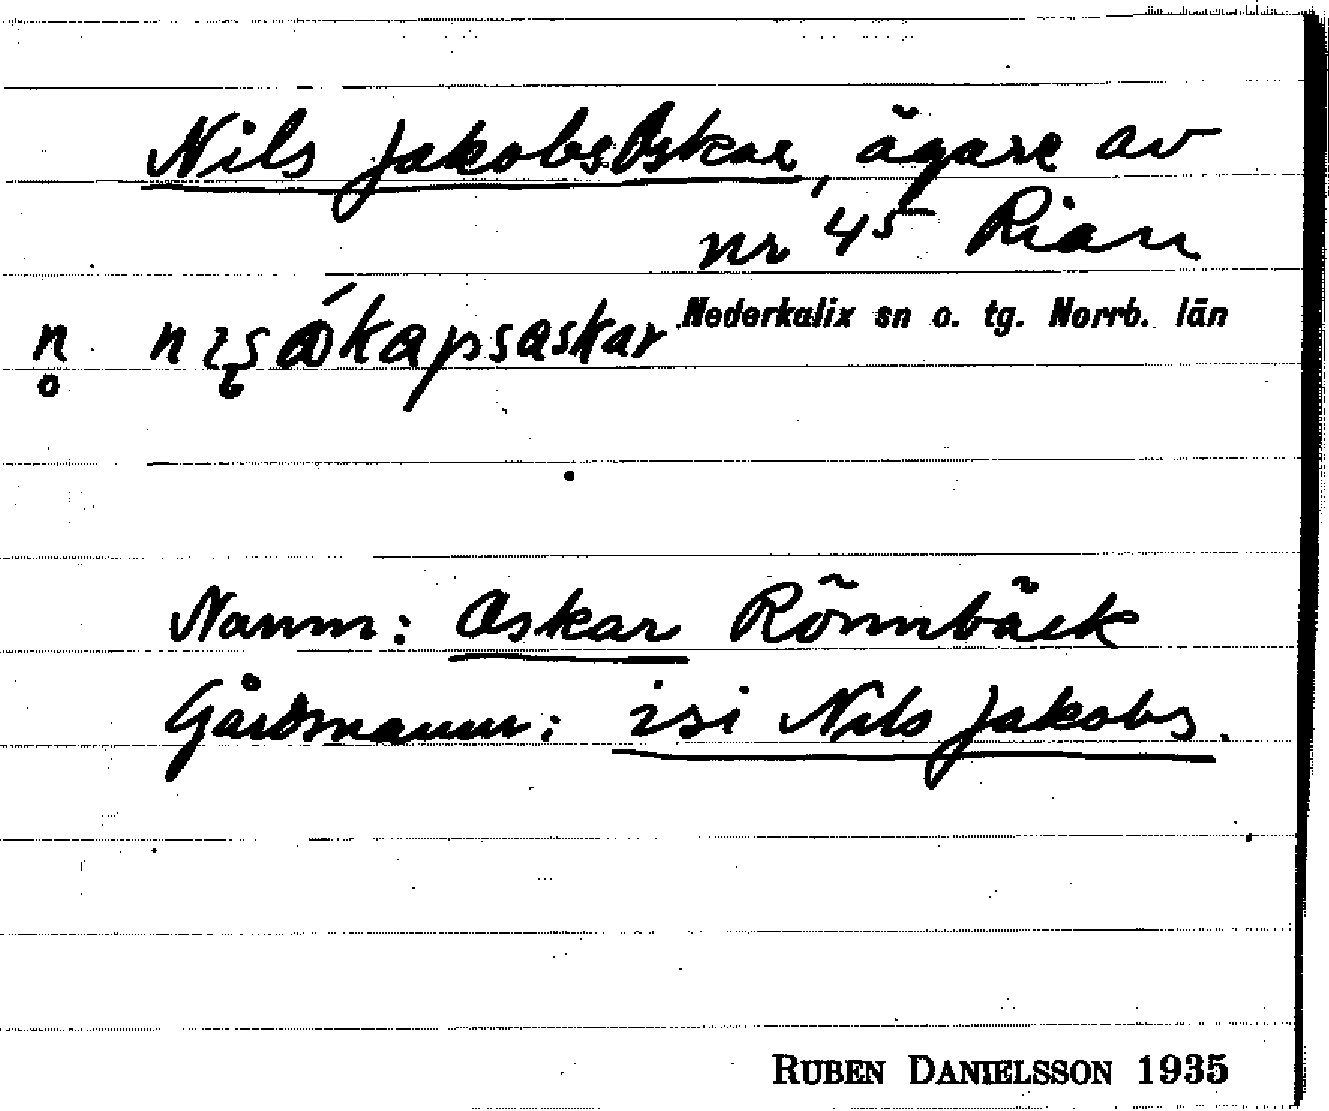 Nils JakobsOskar, ägare av
nr 45 Rian
Nederkalix sn o. tg. Norrb. län
Namn: Oskar Rönnbäck
Gårdsnamn: isi Nils Jakobs.
RUBEN DANIELSSON 1935